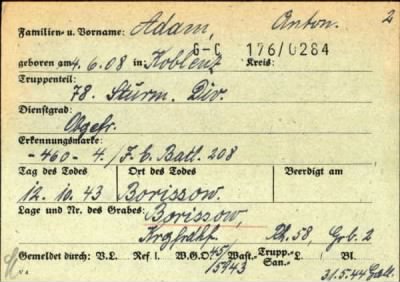 2
Familien- u. Vorname: Adam, Anton.
G-C 176/0284
geboren am 4.6.08 in: Koblenz Kreis:
Truppenteil:
78. Sturm. Div.
Dienstgrad:
Obgefr.
Erkennungsmarke:
-460- 4./ J. E. Batl. 208
Tag des Todes Ort des Todes Beerdigt am
12. 10. 43 Borissow.
Lage und Nr. des Grabes: Borissow,
Krgfrdhf. Rh. 58, Grb. 2
Gemeldet durch: V.L. Ref. I. W.G.O 45/15943 Wast.- Trupp.- San.- L. Bl.
31.5.44